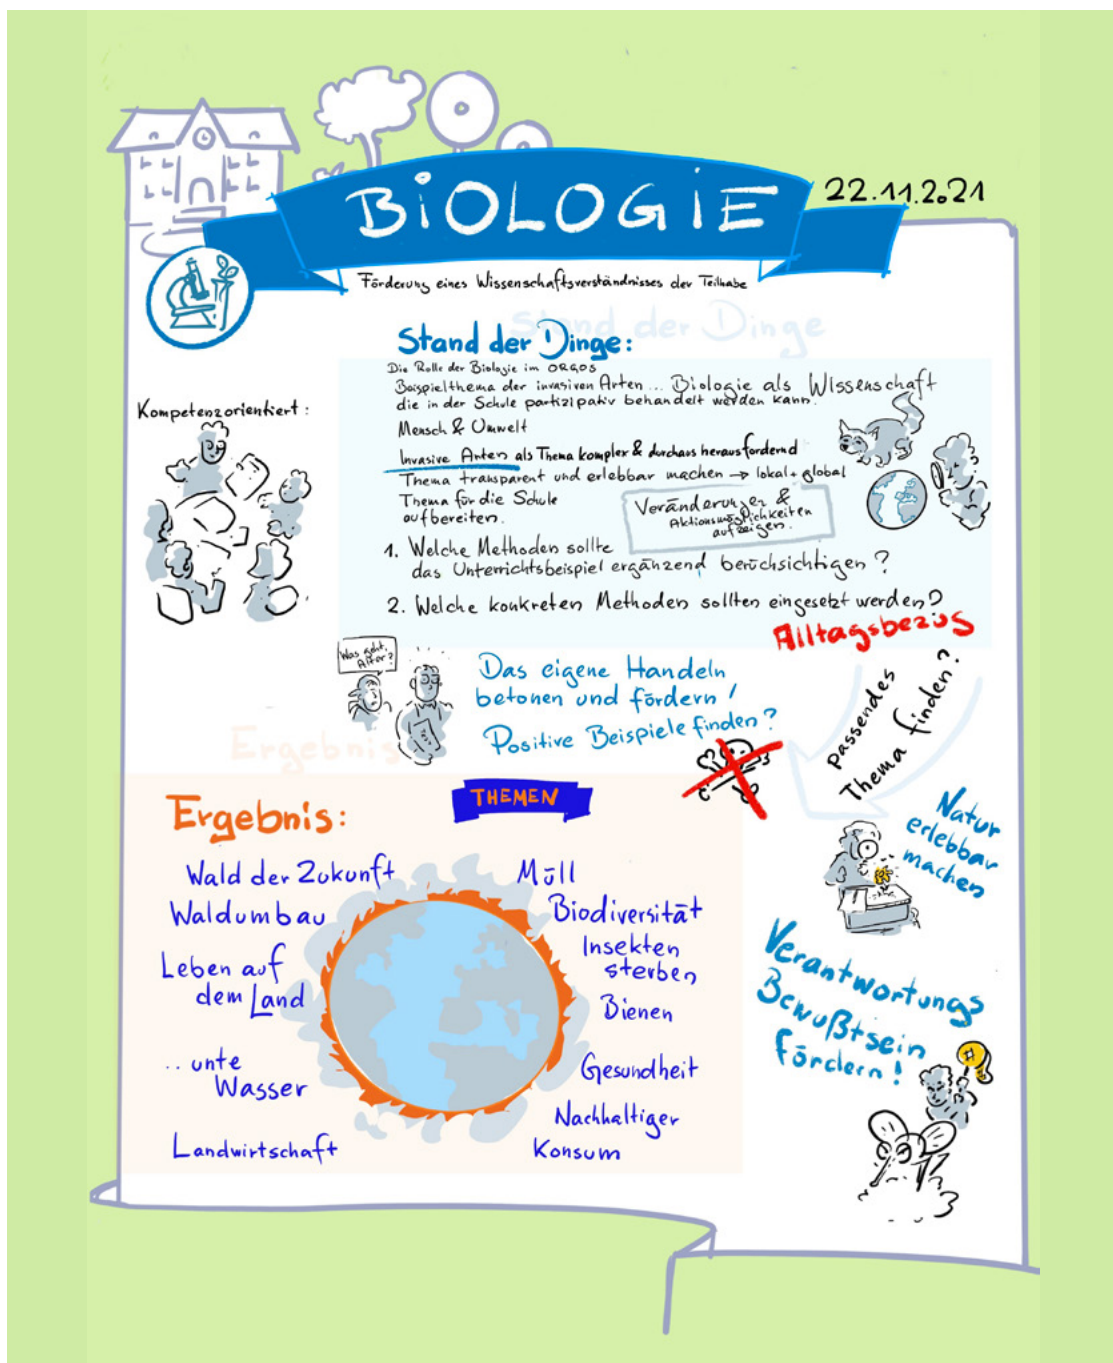 BiOLOGiE
22.11.2021
Förderung eines Wissenschaftsverständnisses der Teilhabe
Stand der Dinge
Stand der Dinge:
Die Rolle der Biologie im ORGOS
Beispielthema der invasiven Arten ... Biologie als Wissenschaft
die in der Schule partizipativ behandelt werden kann.
Mensch & Umwelt
Invasive Arten als Thema komplex & durchaus herausfordernd
Thema transparent und erlebbar machen → lokal + global
Thema für die Schule
aufbereiten.
Veränderungen &
Aktionsmöglichkeiten
aufzeigen.
1. Welche Methoden sollte
das Unterrichtsbeispiel ergänzend berücksichtigen?
2. Welche konkreten Methoden sollten eingesetzt werden?
Kompetenzorientiert:
Alltagsbezug
Was geht,
Alter?
Das eigene Handeln
betonen und fördern!
Positive Beispiele finden?
passendes
Thema finden?
Natur
erlebbar
machen
Verantwortungs
Bewußtsein
fördern!
Ergebnis
Ergebnis:
THEMEN
Wald der Zukunft
Waldumbau
Leben auf
dem Land
.. unte
Wasser
Landwirtschaft
Müll
Biodiversität
Insekten
sterben
Bienen
Gesundheit
Nachhaltiger
Konsum